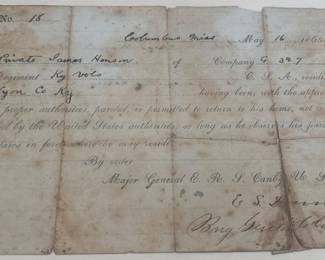 No. 18
Columbus Miss May 16, 1865
Private James Henson of Company G 3d & 7
Regiment Ky Vols C. S. A., resid
Lyon Co Ky having been, with the appr
proper authorities, paroled, is permitted to return to his home, not
ed by the United States authorities, so long as he observes his paro
laws in force where he may reside.
By order
Major General E. R. S. Canby U. S.
E S
Brig Gen